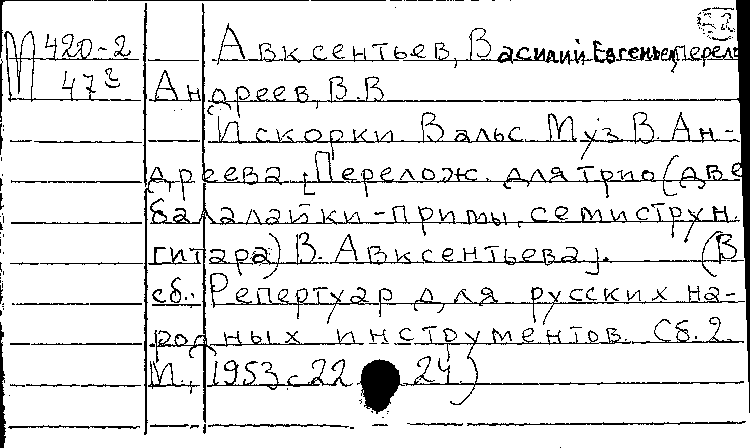 М 420-2
47
Авксентьев, Василий Евгеньев, перел
Андреев, В.В
Искорки Вальс Муз В. Ан-
дреева [Перелож. для трио (две
балалайки-примы, семиструн.
гитара) В. Авксентьева]. (В
сб. Репертуар для русских на-
родных инструментов. Сб. 2
М., 1953 с 22 24)